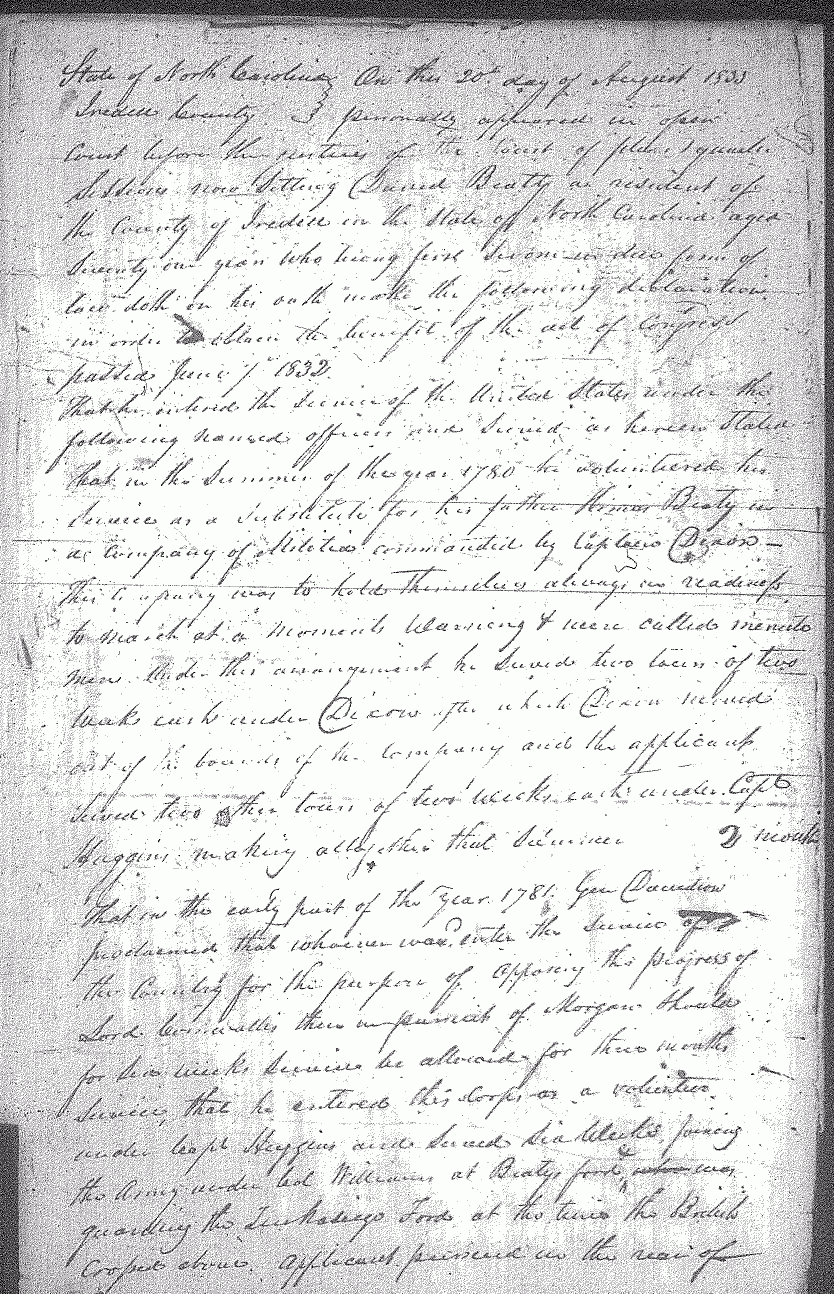 State of North Carolina } On this 20th day of August 1833
Iredell County } personally appeared in open
Court before the Justices of the Court of pleas & quarter
Sessions now Sitting David Beaty a resident of
the County of Iredell in the State of North Carolina aged
Seventy one years who being first Sworn in due form of
law doth on his oath make the following declaration
in order to obtain the benefit of the act of Congress
passed June 7 1832.
That he entered the Service of the United States under the
following named officers and Served as herein Stated
That in the Summer of the year 1780 he volunteered his
Service as a Substitute for his father Beaty in
a Company of Militia commanded by Captain Dixon —
This Company was to hold themselves always in readiness
to march at a moments Warning & were called menute
men Under this arrangement he Served two tours of two
Weeks each under Dixon after which Dixon moved
out of the bounds of the Company and the applicant
Served two other tours of two Weeks each under Capt
Huggins making altogether that Summer 2 month
That in the early part of the year 1781. Gen Davidson
proclaimed that whoever would enter the Service of
the Country for the purpose of opposing the progress of
Lord Cornwallis then in pursuit of Morgan Should
for Six weeks Service be allowed for three months
Service, that he entered this Corps as a volunteer
under Capt Huggins and Served Six Weeks, joining
the Army under Col Williams at Beatys ford, was
guarding the Tuckasiege Ford at the time the British
crossed above. Applicant pursued in the rear of